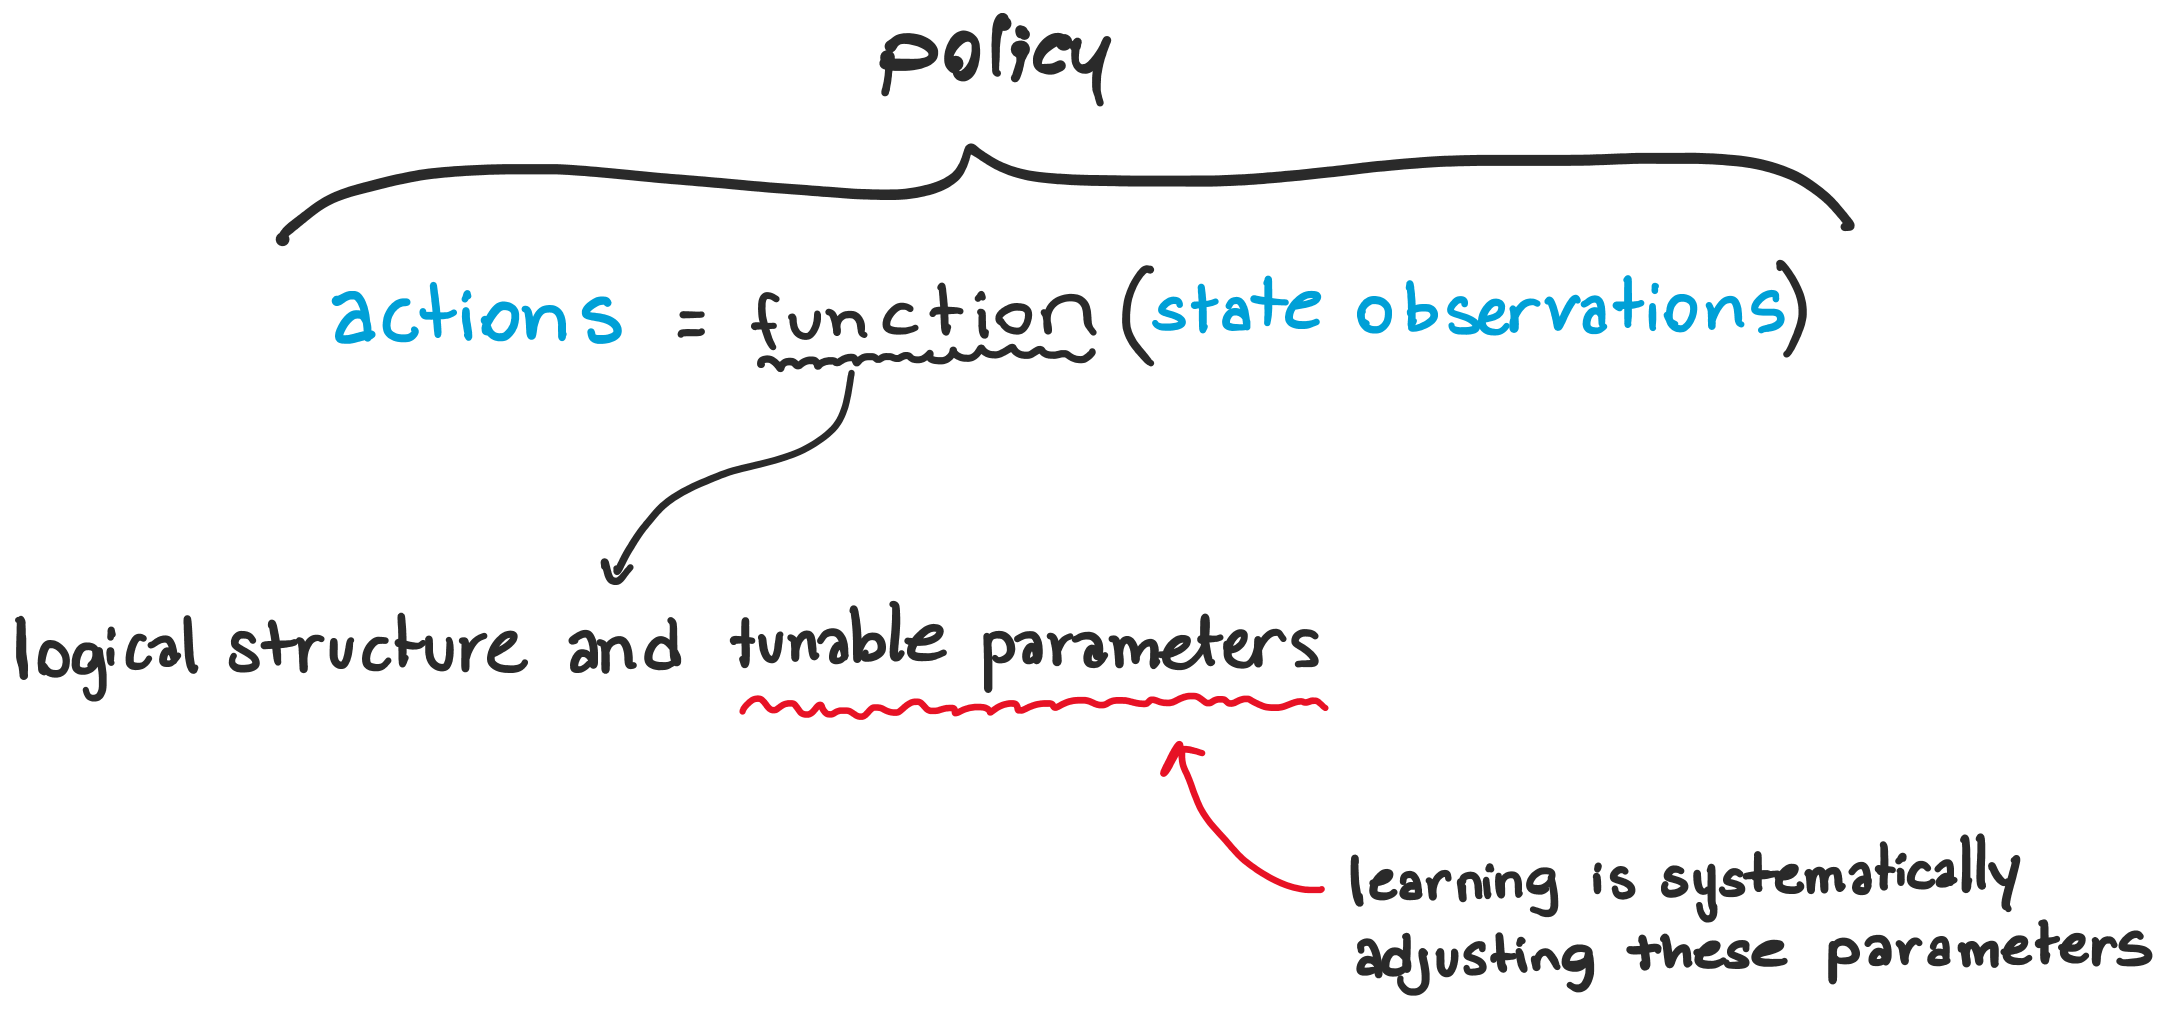 policy
actions = function (state observations)
logical structure and tunable parameters
learning is systematically
adjusting these parameters